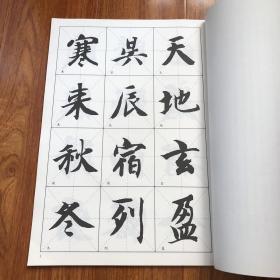 天地玄盈
昃辰宿列
寒来秋冬